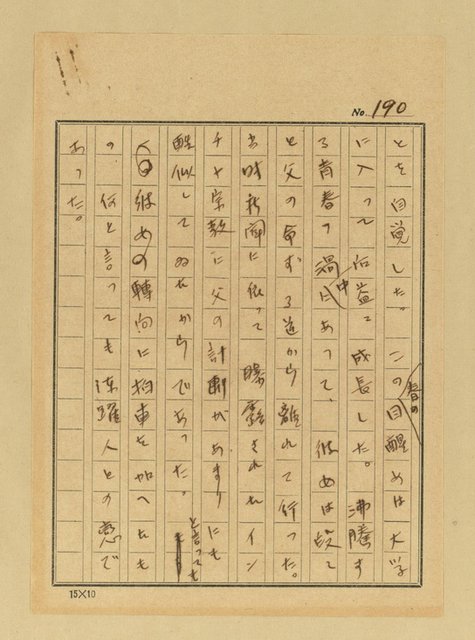 No. 190
とを自覚した。この目醒めは大学
に入って后益々成長した。沸騰す
る青春の渦中にあって、彼女は段々
と父の命ずる道から離れて行った。
当時新聞に依って曝露されたイン
チキ宗教に父の計劃があまりにも
酷似してゐたからであった。と言っても
彼女の轉向に拍車を加へたも
の何と言っても陳躍人との恋で
あった。
15×10